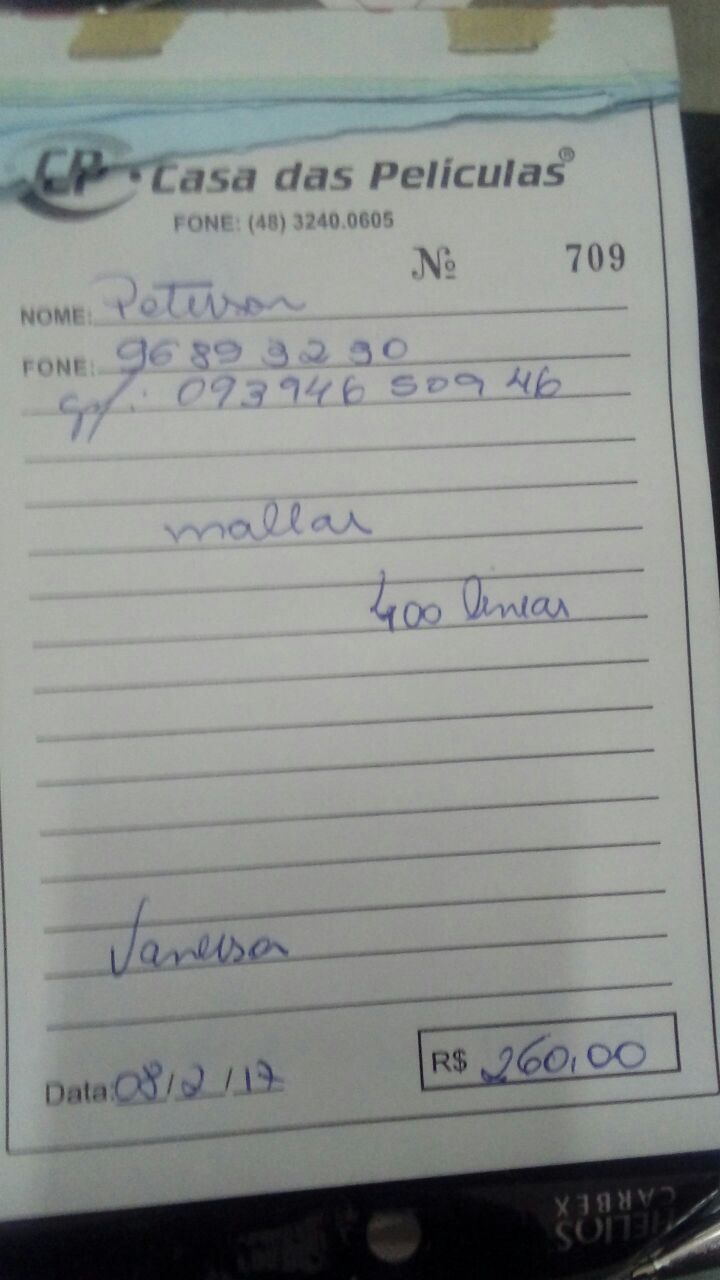 CP · Casa das Películas®
FONE: (48) 3240.0605
Nº 709
NOME: Peterson
FONE: 9689 9290
093946 509 46
mallar
400 linear
Vanessa
Data: 08/2/17
R$ 260,00
HELIOS
CARBEX